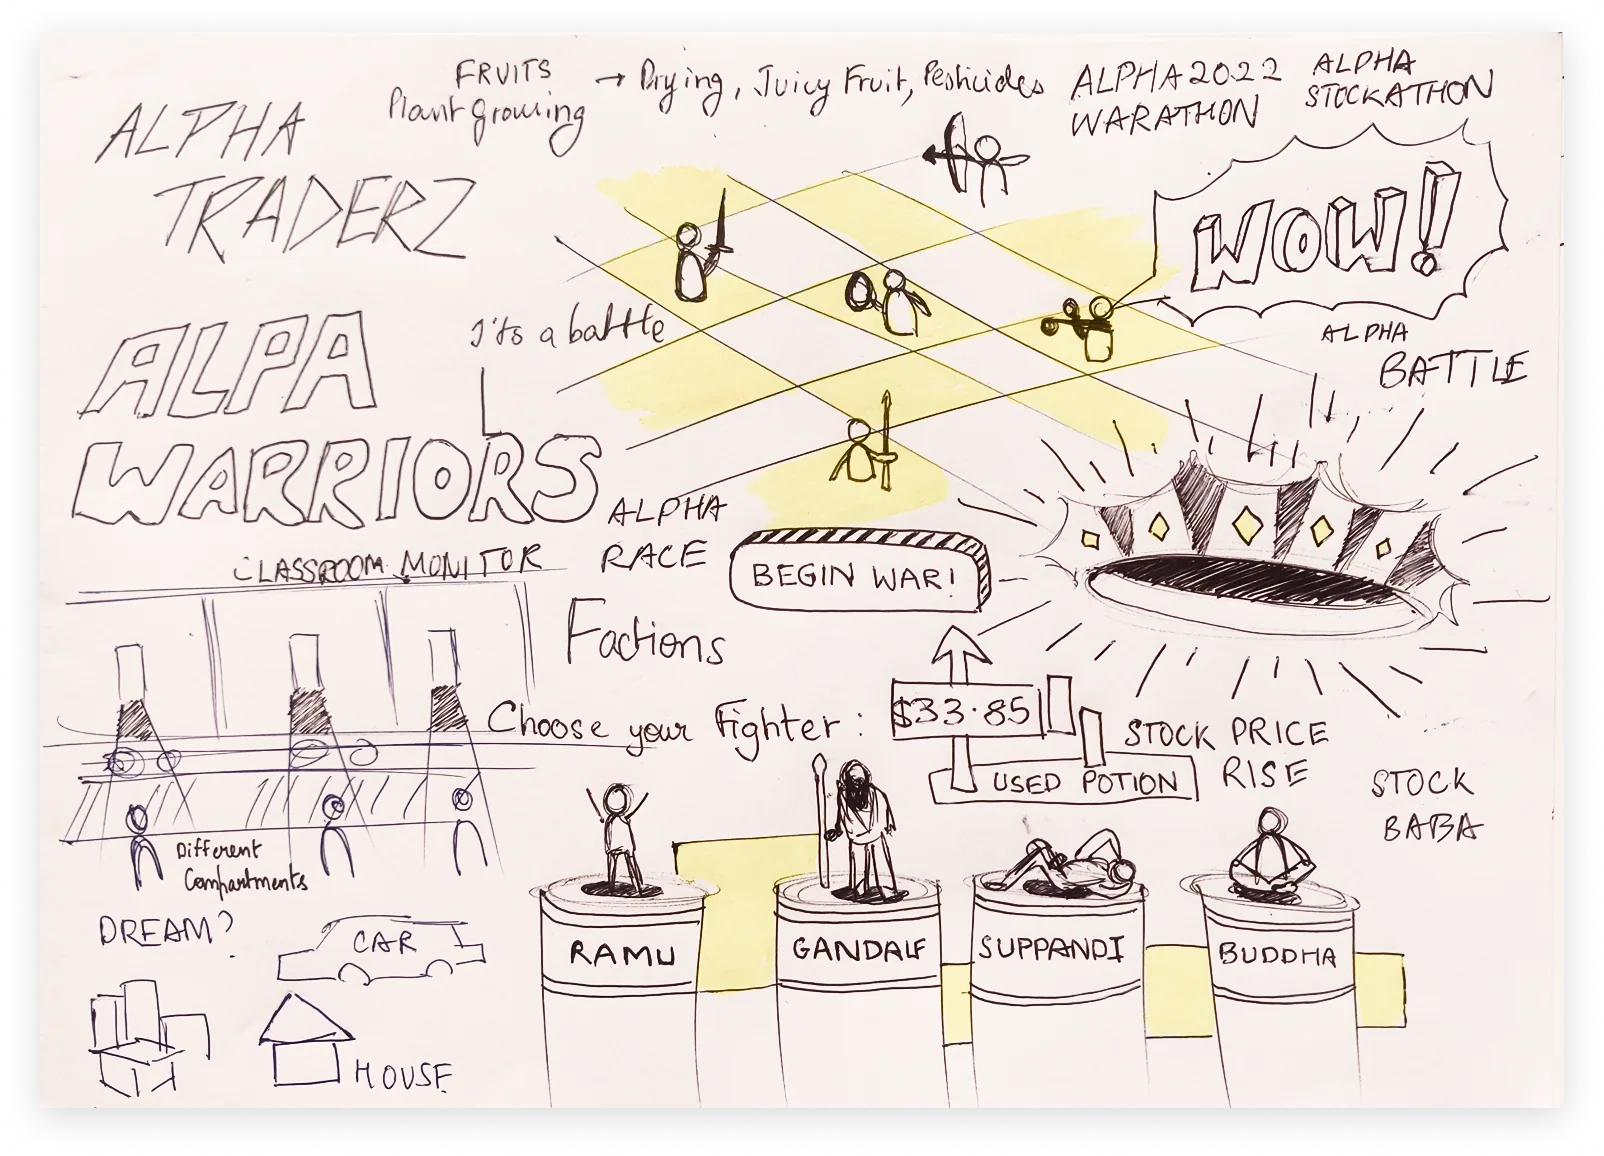 FRUITS → Drying, Juicy Fruit, Pesticides
Plant growing
ALPHA 2022
WARATHON
ALPHA
STOCKATHON
ALPHA
TRADERZ
WOW!
It's a battle
ALPHA
BATTLE
ALPA
WARRIORS
ALPHA
RACE
BEGIN WAR!
CLASSROOM MONITOR
Factions
Choose your Fighter :
$33.85
USED POTION
STOCK PRICE
RISE
STOCK
BABA
Different
Compartments
DREAM?
CAR
HOUSE
RAMU
GANDALF
SUPPANDI
BUDDHA